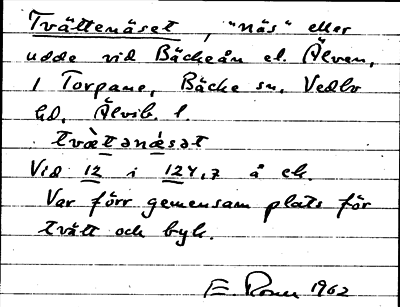 Tvättenäset, "näs" eller
udde vid Bäckeån el. Älven,
1 Torpane, Bäcke sn, Vedbo
hd, Älvsb. l.
tvæ̀tənæ̀sət
Vid 12 i 124,7 å ek.
Var förr gemensam plats för
tvätt och byk.
E. 1962